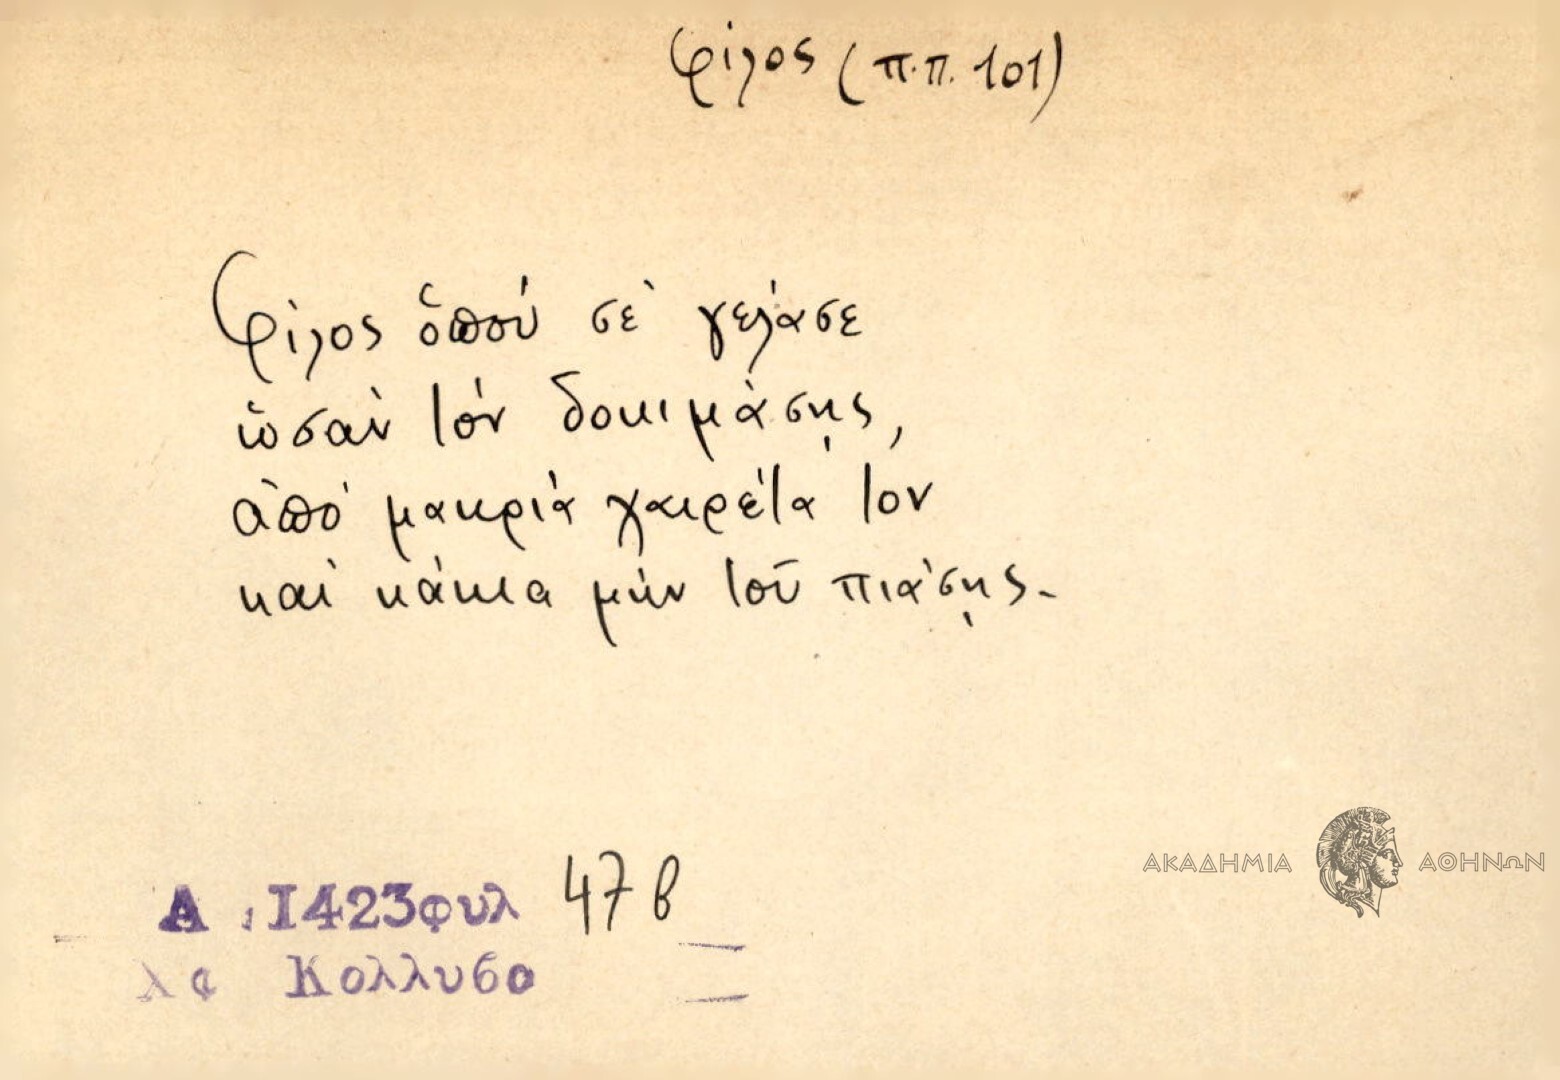 φίλος (π.π. 101)
Φίλος ὁποὺ σὲ γελάσε
ὡσὰν τὸν δοκιμάσῃς,
ἀπὸ μακριὰ χαιρέτα τον
καὶ κάκια μὴν τοῦ πιάσῃς.
Α . 1423φυλ 47β
Κολλυβα
ΑΚΑΔΗΜΙΑ ΑΘΗΝΩΝ